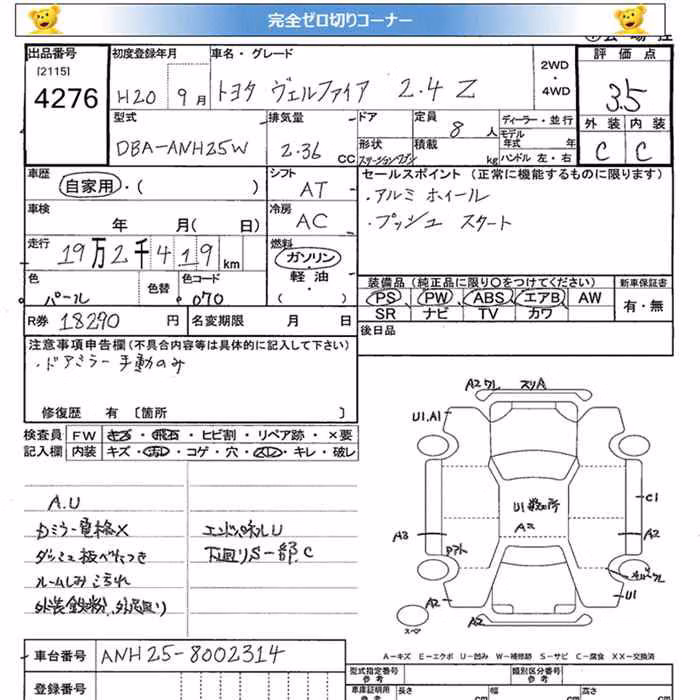 完全ゼロ切りコーナー
出品番号
[2115]
4276
初度登録年月
H20 9月
車名・グレード
トヨタ ヴェルファイア 2.4 Z
2WD
・
4WD
評価点
3.5
外装 内装
C C
型式
DBA-ANH25W
排気量
2.36 CC
ドア
形状
ステーションワゴン
定員
8 人
積載
kg
ディーラー・並行
モデル年式 年
ハンドル 左・右
車歴
自家用・( )
シフト
AT
セールスポイント(正常に機能するものに限ります)
・アルミ ホイール
・プッシュ スタート
車検
年 月( 日)
冷房
AC
走行
19万2千419km
燃料
ガソリン
・
軽油
・
( )
色
パール
色替
色コード
070
装備品(純正品に限り○をつけてください)
PS PW ABS エアB AW
SR ナビ TV カワ
新車保証書
有・無
R券 18290 円
名変期限 月 日
後日品
注意事項申告欄(不具合内容等は具体的に記入して下さい)
・ドアミラー手動のみ
修復歴 有 〔箇所 〕
検査員
記入欄
FW キズ・飛石・ヒビ割・リペア跡・×要
内装 キズ・汚れ・コゲ・穴・スレ・キレ・破レ
A.U
Dミラー電格X
ダッシュ板べたつき
ルームしみ汚れ
外装鉄粉
エンドパネルU
下廻りS一部C
A2ワレ
スリA
U1.A1
U1数ヶ所
A2
C1
A3
A2
A2
U1
A2
スペア
A-キズ E-エクボ U-凹み W-補修跡 S-サビ C-腐食 XX-交換済
車台番号 ANH25-8002314
登録番号
型式指定番号
参考
類別区分番号
参考
車庫証明用
参考
長さ cm
幅 cm
高さ cm